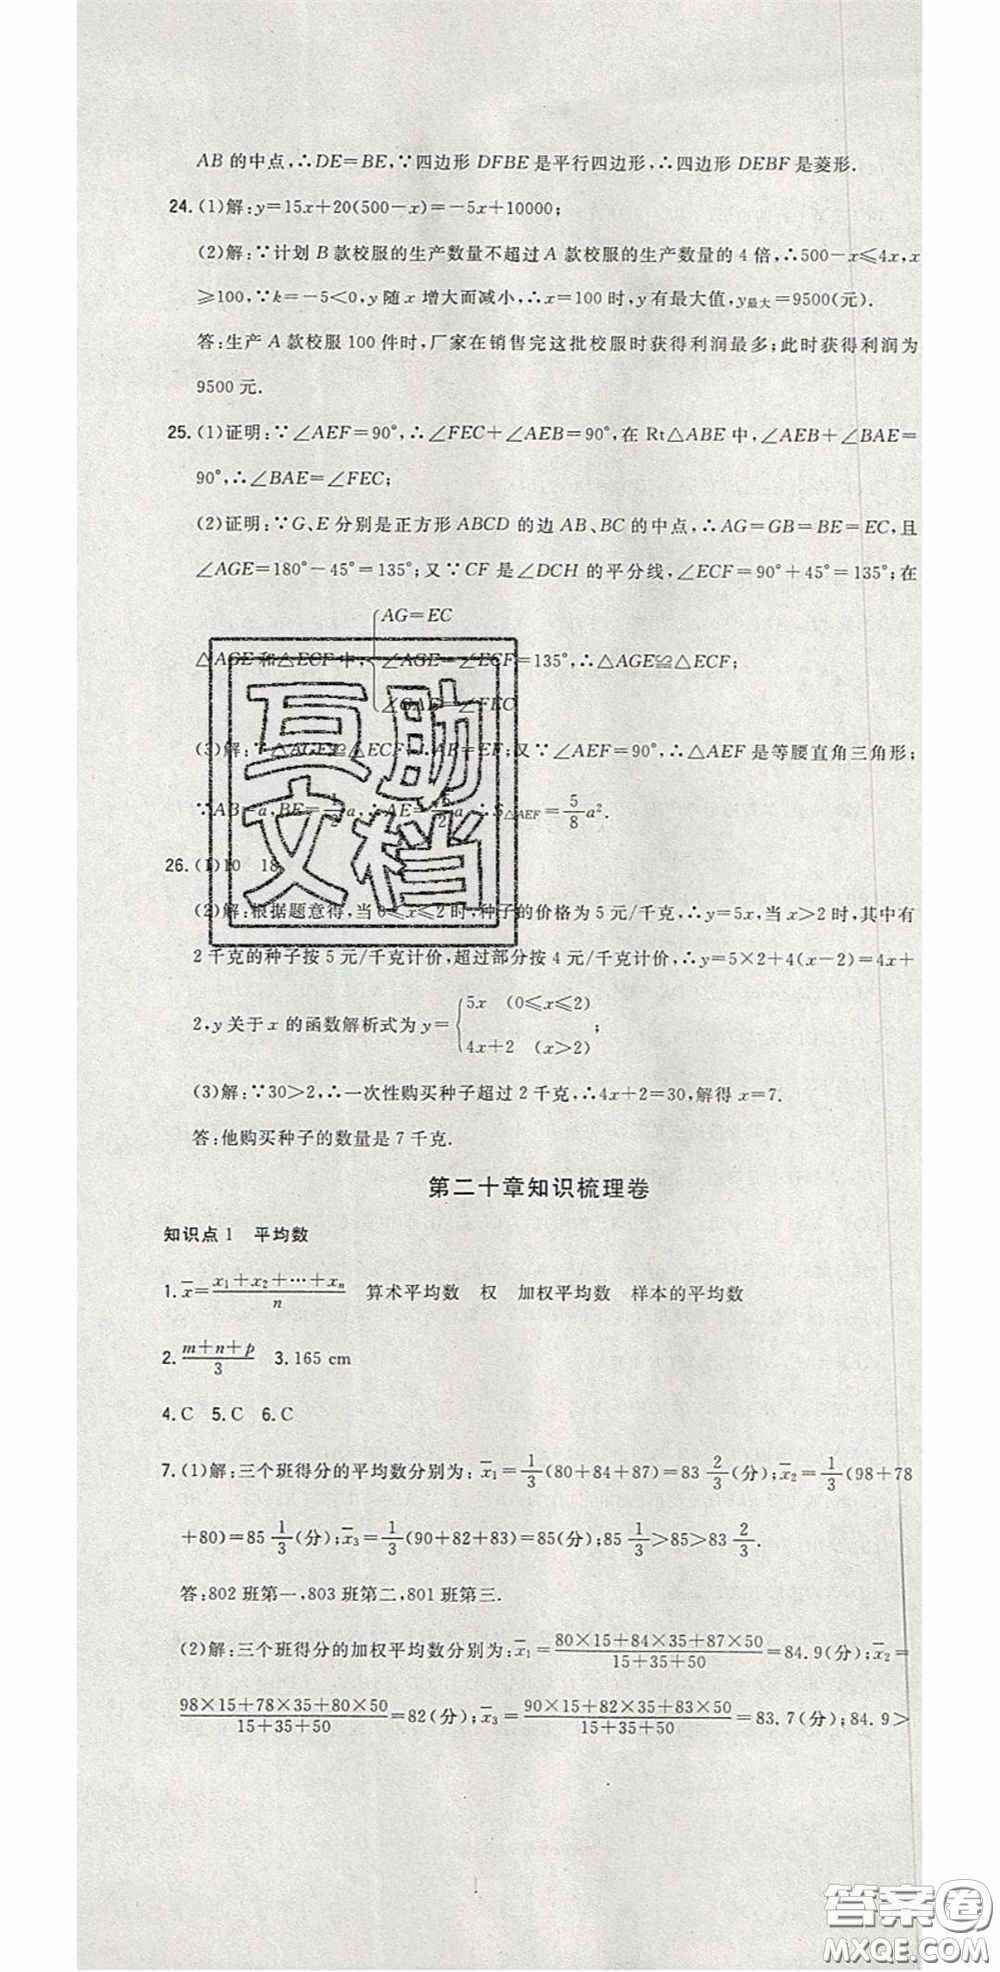 AB 的中点,∴DE=BE,∵四边形 DFBE 是平行四边形,∴四边形 DEBF 是菱形.
24.(1)解:y=15x+20(500-x)=-5x+10000;
(2)解:∵计划 B 款校服的生产数量不超过 A 款校服的生产数量的 4 倍,∴500-x≤4x,x
≥100,∵k=-5<0,y 随 x 增大而减小,∴x=100 时,y 有最大值,y最大=9500(元).
答:生产 A 款校服 100 件时,厂家在销售完这批校服时获得利润最多;此时获得利润为
9500 元.
25.(1)证明:∵∠AEF=90°,∴∠FEC+∠AEB=90°,在 Rt△ABE 中,∠AEB+∠BAE=
90°,∴∠BAE=∠FEC;
(2)证明:∵G、E 分别是正方形 ABCD 的边 AB、BC 的中点,∴AG=GB=BE=EC,且
∠AGE=180°-45°=135°;又∵CF 是∠DCH 的平分线,∠ECF=90°+45°=135°;在
AG=EC
△AGE 和△ECF 中, ∠AGE=∠ECF=135°,∴△AGE≌△ECF;
∠GAE=∠FEC
(3)解:∵△AGE≌△ECF,∴AE=EF;又∵∠AEF=90°,∴△AEF 是等腰直角三角形;
∵AB=a,BE=1/2a,∴AE= ∴S△AEF=5/8a².
26.(1)10 18
(2)解:根据题意得,当 0≤x≤2 时,种子的价格为 5 元/千克,∴y=5x,当 x>2 时,其中有
2 千克的种子按 5 元/千克计价,超过部分按 4 元/千克计价,∴y=5×2+4(x-2)=4x+
2,y 关于 x 的函数解析式为 y={5x (0≤x≤2)
4x+2 (x>2);
(3)解:∵30>2,∴一次性购买种子超过 2 千克,∴4x+2=30,解得 x=7.
答:他购买种子的数量是 7 千克.
第二十章知识梳理卷
知识点 1 平均数
1. x̄=(x₁+x₂+…+xₙ)/n 算术平均数 权 加权平均数 样本的平均数
2. (m+n+p)/3 3. 165 cm
4. C 5. C 6. C
7.(1)解:三个班得分的平均数分别为:x̄₁=1/3(80+84+87)=83 2/3(分);x̄₂=1/3(98+78
+80)=85 1/3(分);x̄₃=1/3(90+82+83)=85(分);85 1/3>85>83 2/3.
答:802 班第一,803 班第二,801 班第三.
(2)解:三个班得分的加权平均数分别为:x̄₁=(80×15+84×35+87×50)/(15+35+50)=84.9(分);x̄₂=
(98×15+78×35+80×50)/(15+35+50)=82(分);x̄₃=(90×15+82×35+83×50)/(15+35+50)=83.7(分);84.9>
互助
文档
答案卷
MXQE.COM